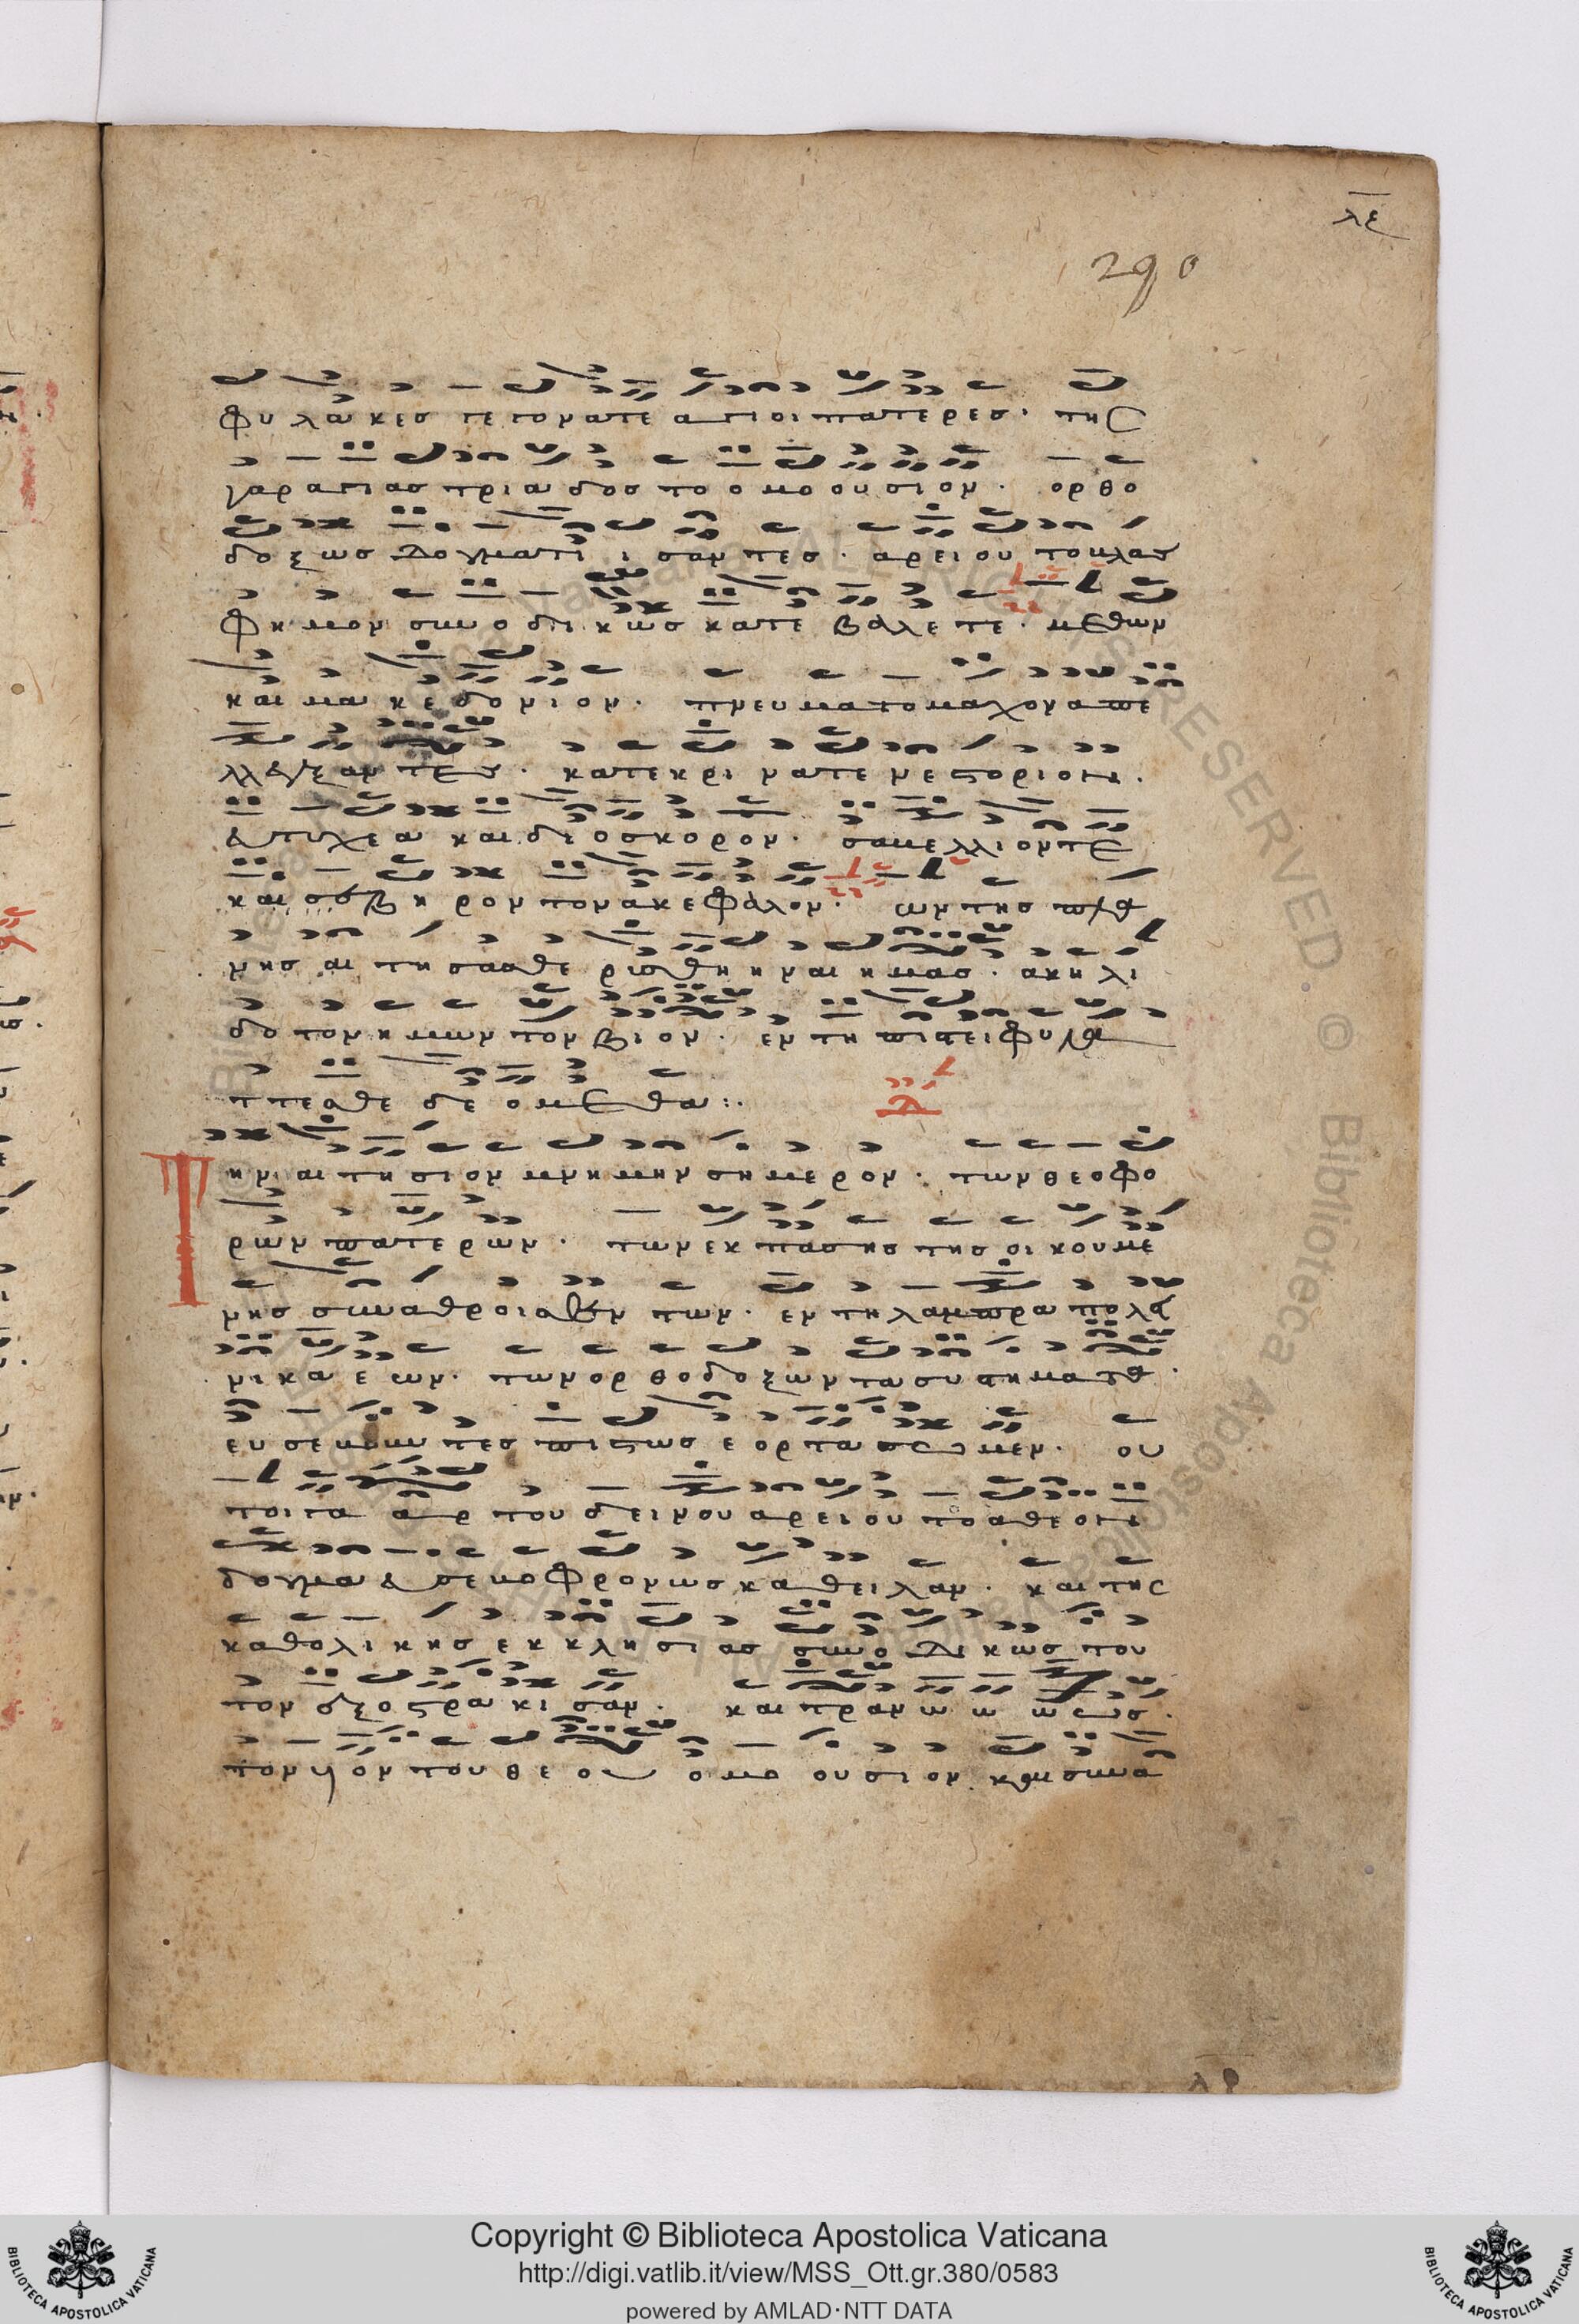 λε
290
φυλακες γεγονατε αγιοι πατερες · της
γαρ αγιας τριαδος το ομοουσιον · ορθο
δοξως δογματι ι σαντες · αρειου τον βλας
φημον συνοδικως κατε βαλετε · μεθ ων
και μακεδονιον · πνευματομαχον απε
λεγξαντες · κατεκρινατε νεστοριον ·
ευτυχεα και διοσκορον · σαβελλιον τε
και σεβηρον τον ακεφαλον · ων της πλα
νης αιτησασθε ρυσθηναι ημας · ακηλι
δοτον ημων τον βιον · εν τη πιστει φυλα
ττεσθε δεομεθα :·
δ
Την αγιαν μνημην σημερον · των θεοφο
ρων πατερων · των εκ πασης της οικουμε
νης συναθροισθεντων · εν τη λαμπρα πολει
νικαεων · των ορθοδοξων τα συστηματα ·
ευσεβουντες πιστως εορτασωμεν · ου
τοι γαρ του δεινου αρειου το αθεον
δογμα ευσεβοφρονως καθειλαν · και της
καθολικης εκκλησιας συνοδικως του
τον εξοστρακισαν · και τρανω ω ω ως ·
τον υιον του θεου ομοουσιον και συνα
λβ
Copyright © Biblioteca Apostolica Vaticana
http://digi.vatlib.it/view/MSS_Ott.gr.380/0583
powered by AMLAD·NTT DATA
BIBLIOTECA APOSTOLICA VATICANA
BIBLIOTECA APOSTOLICA VATICANA